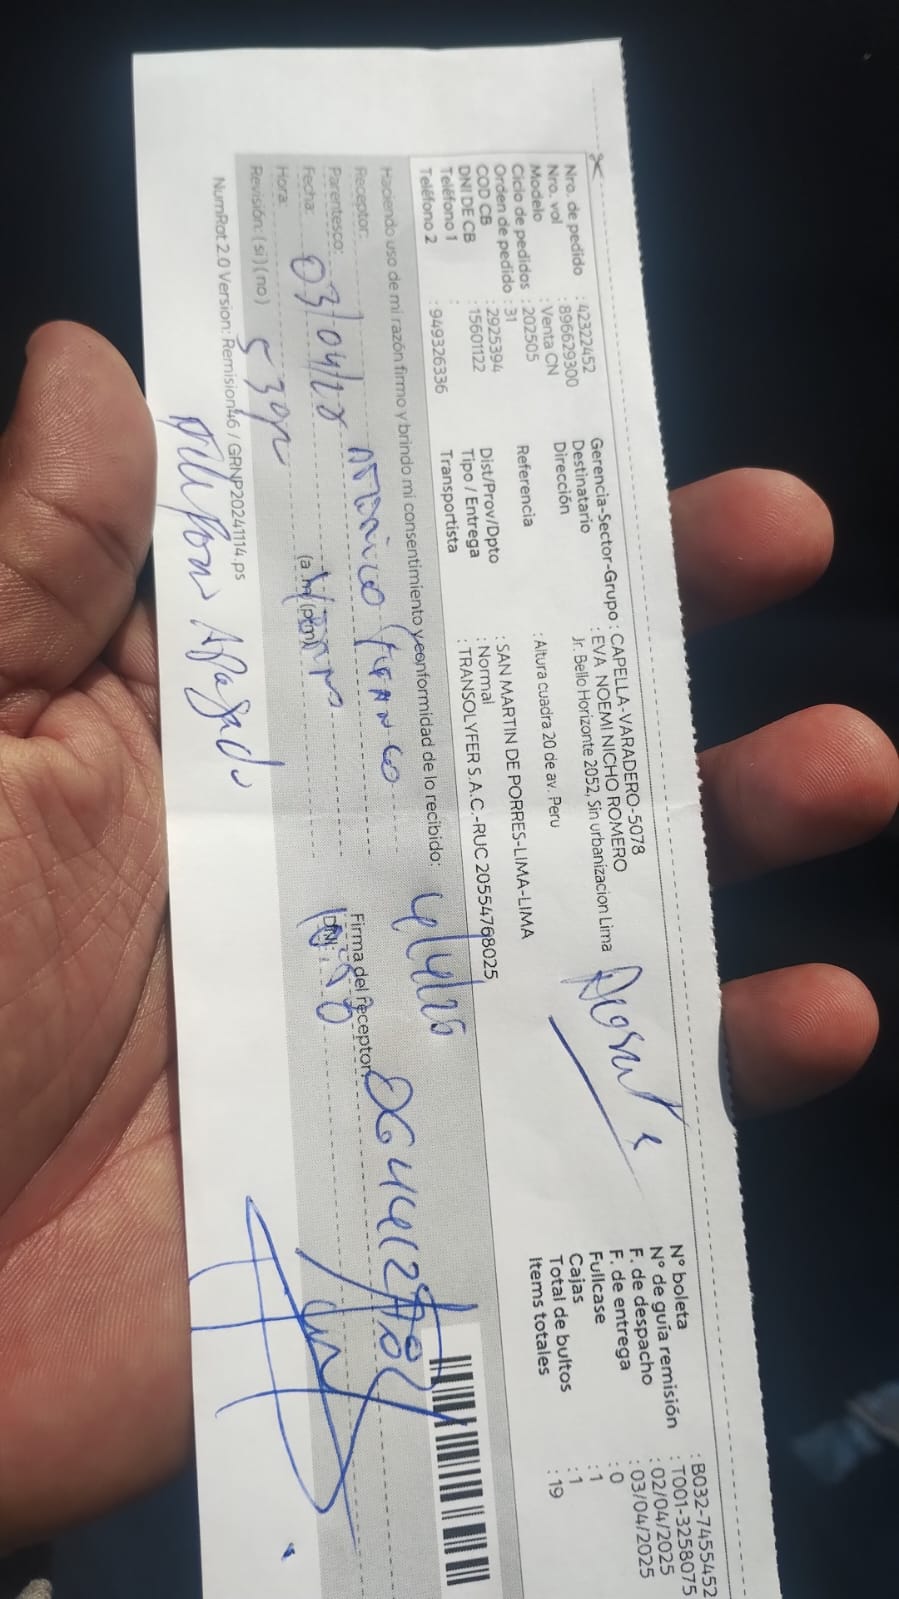 Nro. de pedido : 42322452
Nro. vol : 896629300
Modelo : Venta CN
Ciclo de pedidos : 202505
Orden de pedido : 31
COD CB : 2925394
DNI DE CB : 15601122
Teléfono 1 :
Teléfono 2 : 949326336
Gerencia-Sector-Grupo : CAPELLA-VARADERO-5078
Destinatario : EVA NOEMI NICHO ROMERO
Dirección Jr. Bello Horizonte 2052, Sin urbanizacion Lima
Referencia : Altura cuadra 20 de av. Peru
Dist/Prov/Dpto : SAN MARTIN DE PORRES-LIMA-LIMA
Tipo / Entrega : Normal
Transportista : TRANSOLYFER S.A.C.-RUC 20554768025
N° boleta : B032-7455452
N° de guía remisión : T001-3258075
F. de despacho : 02/04/2025
F. de entrega : 03/04/2025
Fullcase : 0
Cajas : 1
Total de bultos : 1
Items totales : 19
Haciendo uso de mi razón firmo y brindo mi consentimiento y conformidad de lo recibido:
Receptor:
Parentesco:
Fecha: 03/04/
Hora: (a.m) (p.m)
Revisión: (si) (no)
Firma del receptor
DNI:
NumRot 2.0 Version: Remision46 / GRNP20241114.ps
Apagado